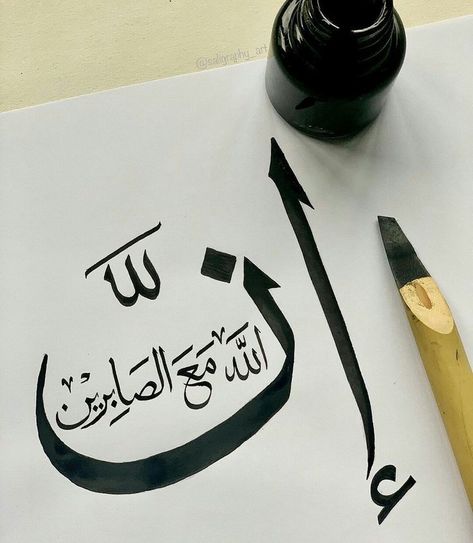 @saligraphy_art
إنَّ
اللّٰه مَعَ الصَابِرين